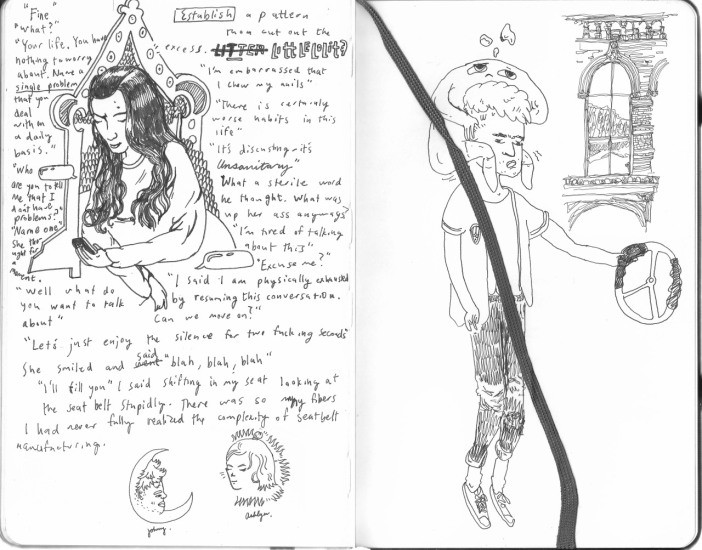 "Fine"
"What?"
"Your life. You have
nothing to worry
about. Name a
single problem
that you
deal
with on
a daily
basis."
"Who
are you to tell
me that I
don't have
problems?"
"Name one"
She thought for
a
moment.
Establish a pattern
than cut out the
excess.
"I'm embarrassed that
I chew my nails"
"There is certainly
worse habits in this
life"
"It's disgusting it's
Unsanitary"
What a sterile word
he thought. What was
up her ass anyways?
"I'm tired of talking
about this"
"Excuse me?"
"I said I am physically exhausted
by resuming this conversation.
Can we move on?"
"Well what do
you want to talk
about"
"Let's just enjoy the silence for two fucking seconds"
She smiled and said "blah, blah, blah"
"I'll kill you" I said shifting in my seat looking at
the seat belt stupidly. There was so many fibers
I had never fully realized the complexity of seatbelt
manufacturing.
johnny.
Ashlyn.